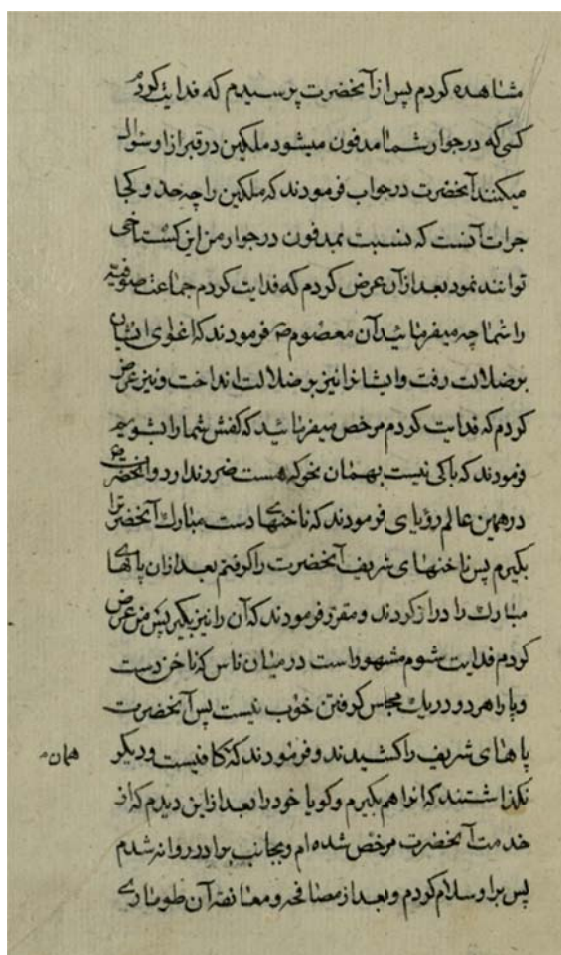 مشاهده کردم پس از آنحضرت پرسیدم که فدایت کردم
کسی که در جوار شما مدفون میشود ملکین در قبر از او سؤال
میکنند آنحضرت در جواب فرمودند که ملکین را چه حد و کجا
جرات آنست که نسبت بمدفون در جوار من این کستاخی
توانند نمود بعد از آن عرض کردم که فدایت کردم جماعت صوفیه
را شما چه میفرمائید آن معصوم فرمودند که اغلوی ایشان
بر ضلالت رفت و ایشانرا نیز بر ضلالت انداخت و نیز عرض
کردم که فدایت کردم مرخص میفرمائید که کفش شما را بشویم
فرمودند که باکی نیست بهمان نحو که هست ضرر ندارد و آنحضرت
در همین عالم رؤیا فرمودند که ناخنهای دست مبارک آنحضرترا
بکیرم پس ناخنهای شریف آنحضرت را کرفتم بعد از آن پاهای
مبارک را دراز کردند و مقرر فرمودند که آن را نیز بکیر پس من عرض
کردم فدایت شوم مشهور است در میان ناس که ناخن دست
و پا را هر دو در یک مجلس کرفتن خوب نیست پس آنحضرت
پاهای شریف را کشیدند و فرمودند که کافیست و دیکر همان
نکذاشتند که انرا هم بکیرم و کویا خود را بعد از این دیدم که از
خدمت آنحضرت مرخص شده ام و بجانب برادر روانه شدم
پس بر او سلام کردم و بعد از مصافحه و معانقه آن طوماری